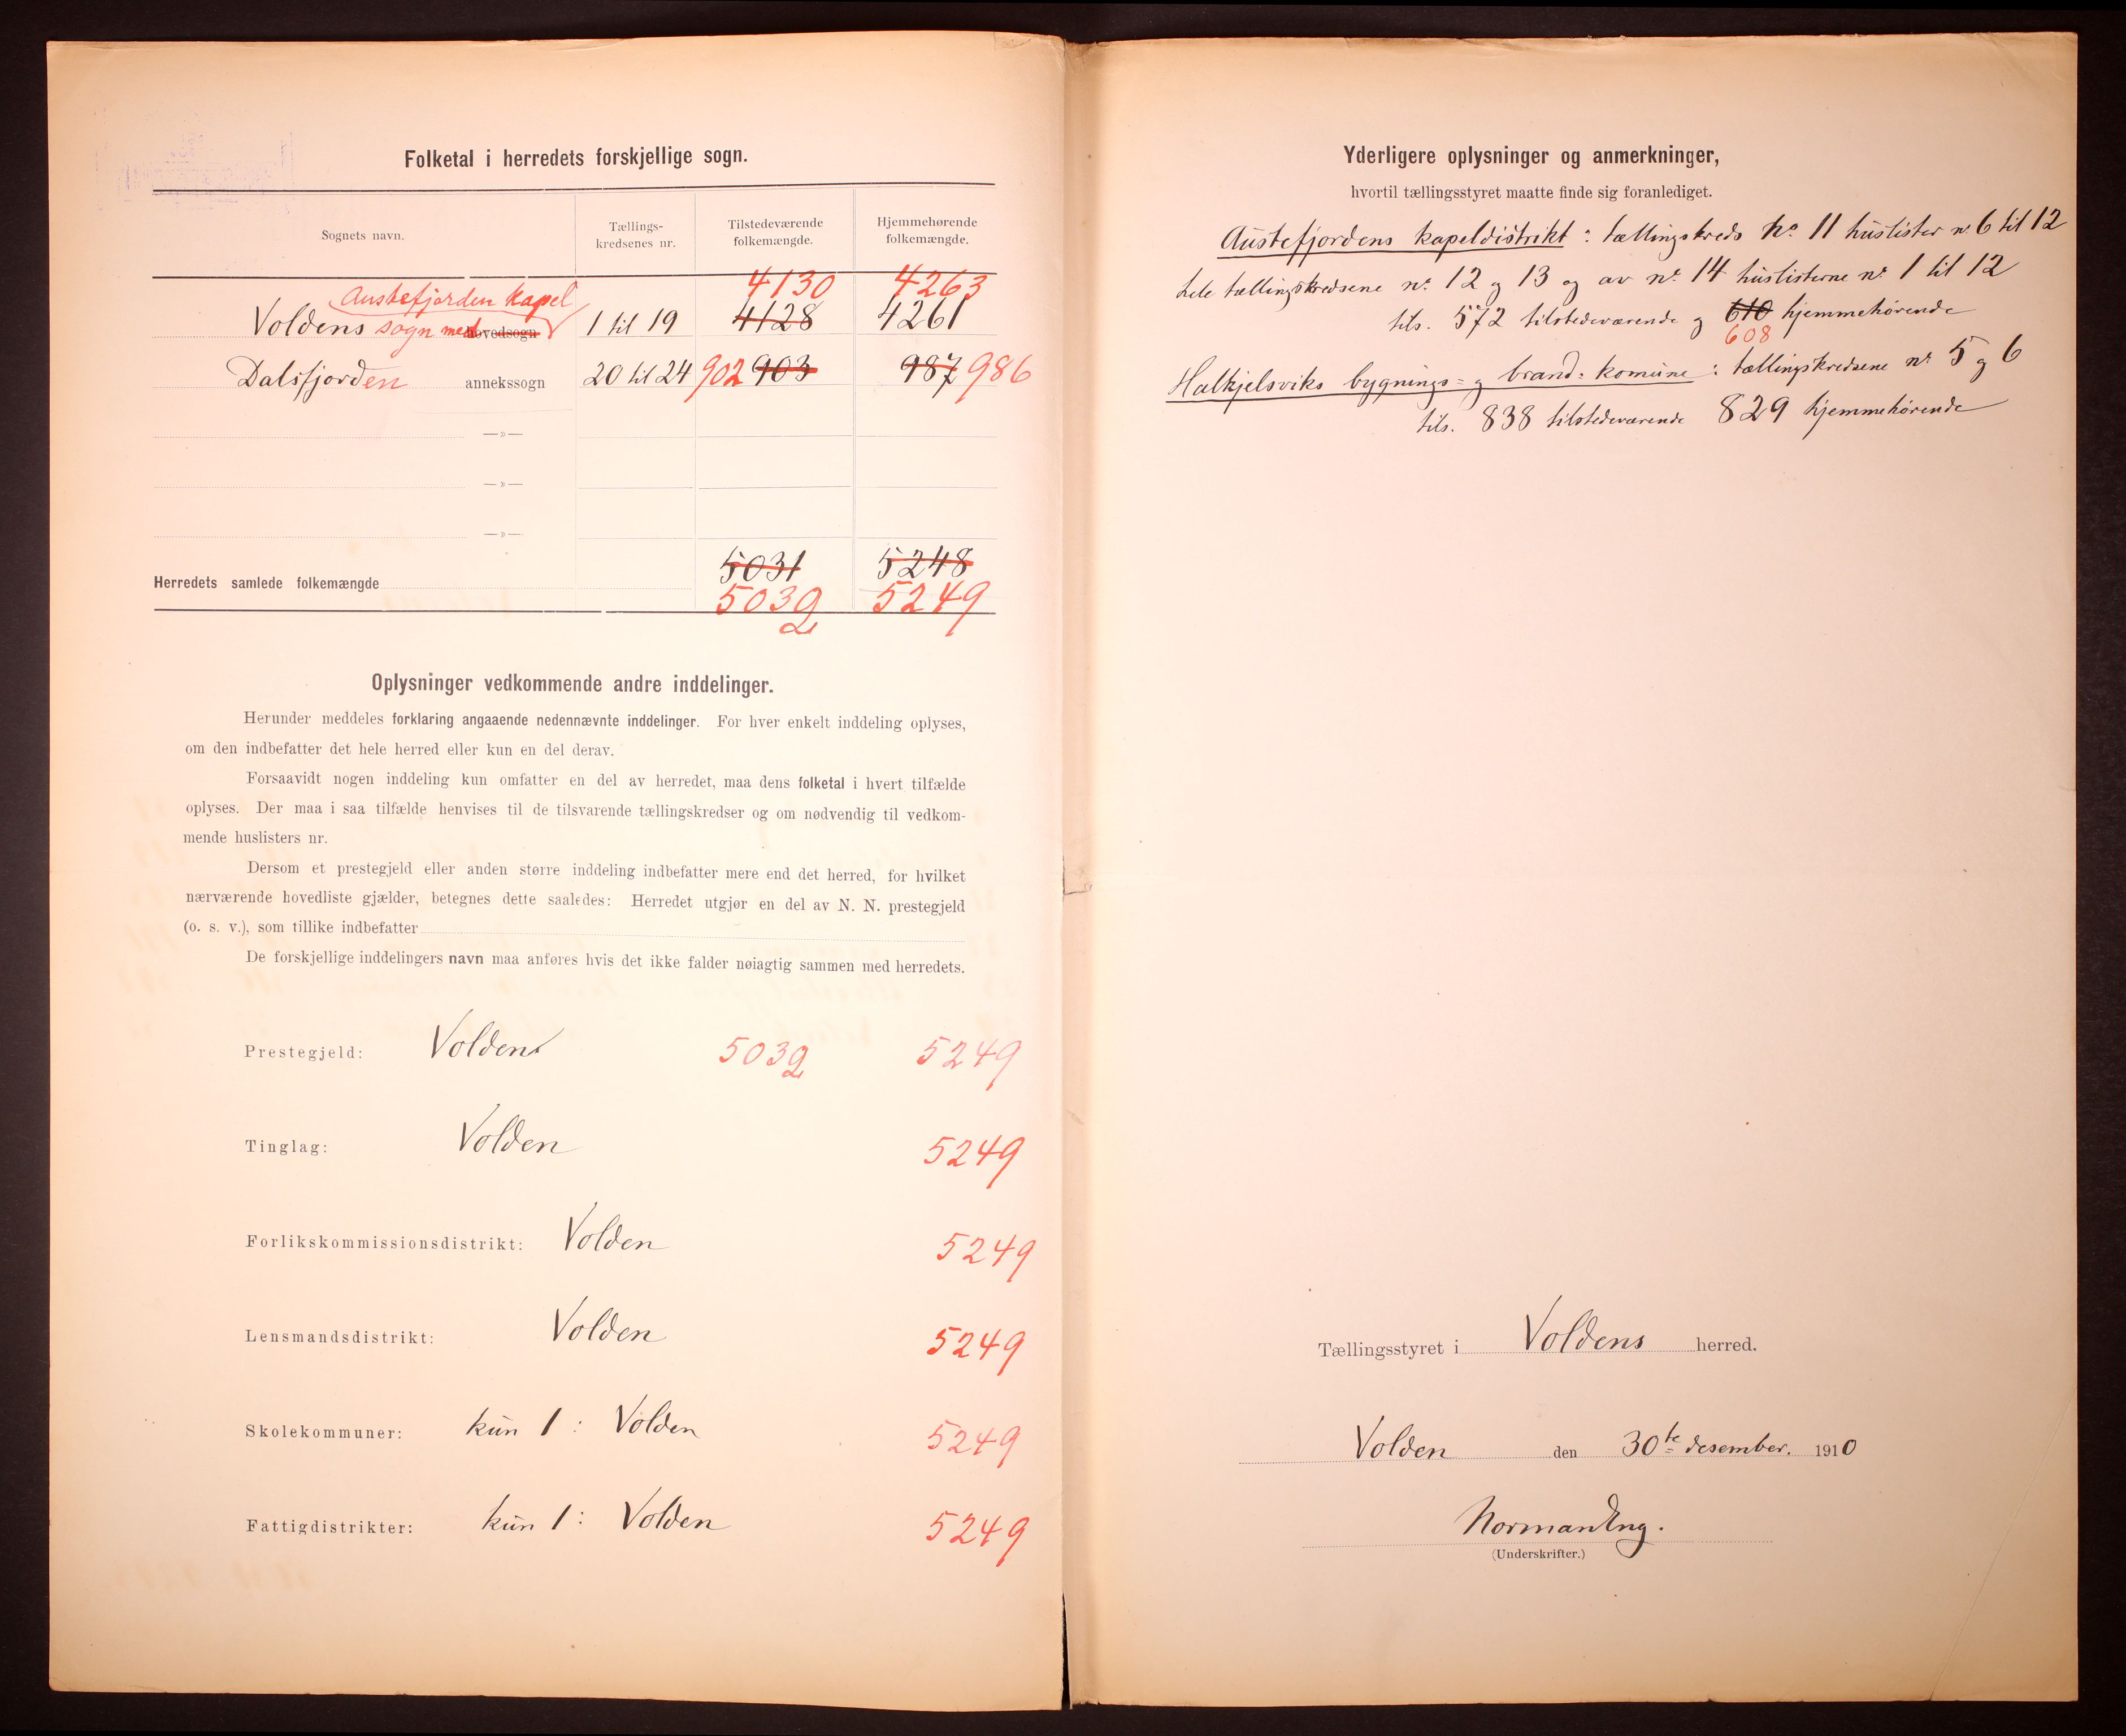 Folketal i herredets forskjellige sogn.
Sognets navn.
Tællings-
kredsenes nr.
Tilstedeværende
folkemængde.
Hjemmehørende
folkemængde.
Austefjorden kapel
4130 4263
Voldens sogn med hovedsogn 1 til 19 4128 4261
Dalsfjorden annekssogn 20 til 24 902 903 987 986
—»—
—»—
—»—
5031 5248
Herredets samlede folkemængde
5032 5249
Oplysninger vedkommende andre inddelinger.
Herunder meddeles forklaring angaaende nedennævnte inddelinger. For hver enkelt inddeling oplyses,
om den indbefatter det hele herred eller kun en del derav.
Forsaavidt nogen inddeling kun omfatter en del av herredet, maa dens folketal i hvert tilfælde
oplyses. Der maa i saa tilfælde henvises til de tilsvarende tællingskredser og om nødvendig til vedkom-
mende huslisters nr.
Dersom et prestegjeld eller anden større inddeling indbefatter mere end det herred, for hvilket
nærværende hovedliste gjælder, betegnes dette saaledes: Herredet utgjør en del av N. N. prestegjeld
(o. s. v.), som tillike indbefatter
De forskjellige inddelingers navn maa anføres hvis det ikke falder nøiagtig sammen med herredets.
Prestegjeld: Voldens 5032 5249
Tinglag: Volden 5249
Forlikskommissionsdistrikt: Volden 5249
Lensmandsdistrikt: Volden 5249
Skolekommuner: kun 1: Volden 5249
Fattigdistrikter: kun 1: Volden 5249
Yderligere oplysninger og anmerkninger,
hvortil tællingsstyret maatte finde sig foranlediget.
Austefjordens kapeldistrikt: tællingskreds No 11 huslister nr 6 til 12
hele tællingskredsene nr 12 og 13 og av nr 14 huslisterne nr 1 til 12
tils. 572 tilstedeværende og 610 hjemmehørende
608
Halkjelsviks bygnings= og brand= komune: tællingskredsene nr 5 og 6
tils. 838 tilstedeværende 829 hjemmehørende
Tællingsstyret i Voldens herred.
Volden den 30te desember. 1910
Norman Eng.
(Underskrifter.)